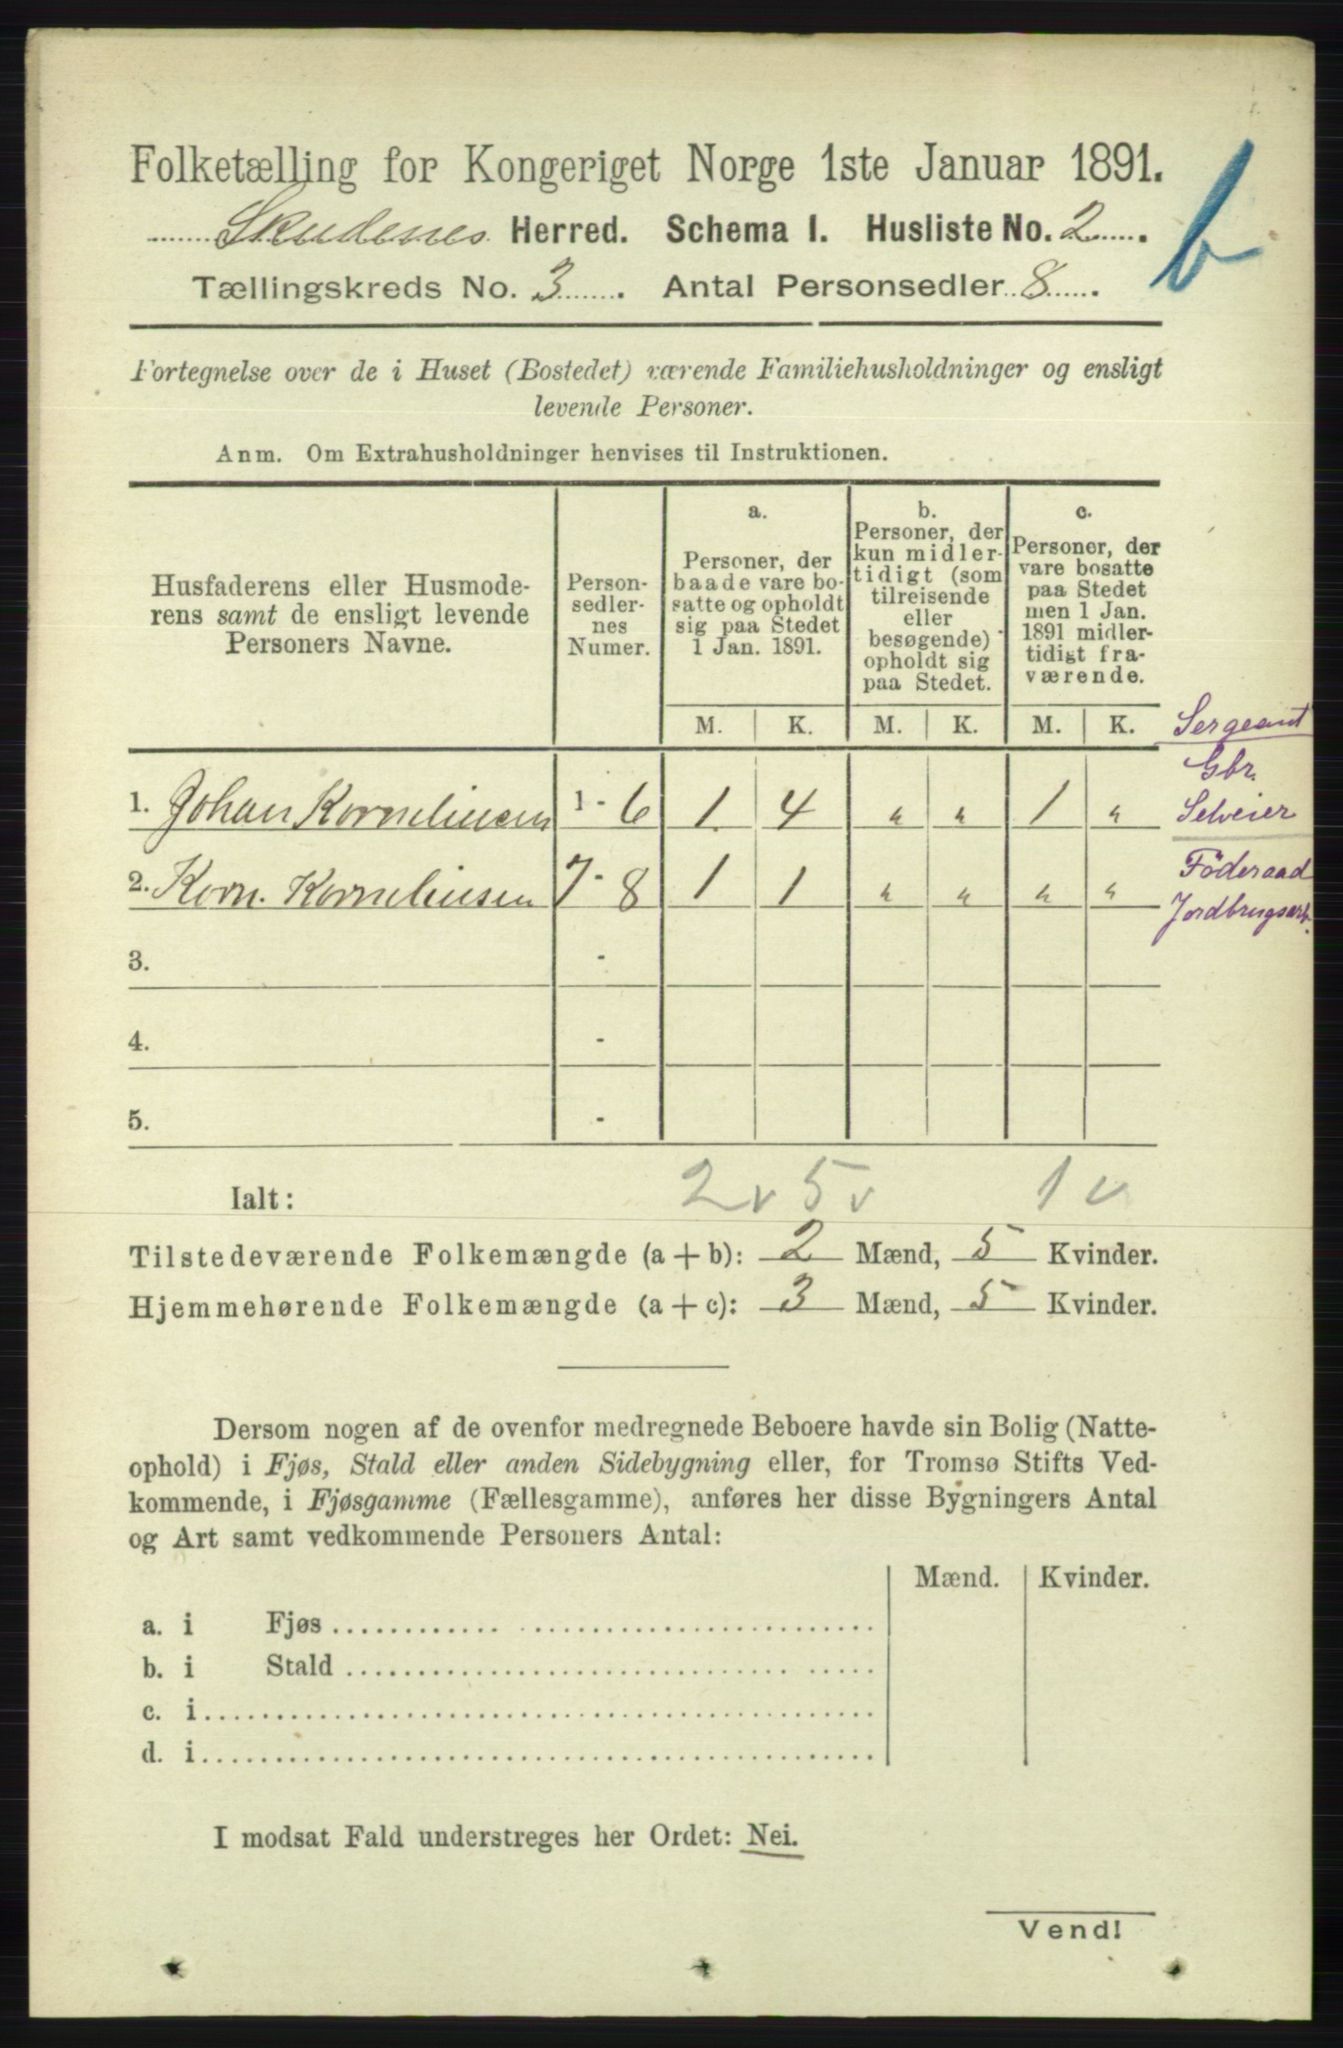 Folketælling for Kongeriget Norge 1ste Januar 1891.
b
Skudenes Herred. Schema I. Husliste No. 2
Tællingskreds No. 3. Antal Personsedler 8.
Fortegnelse over de i Huset (Bostedet) værende Familiehusholdninger og ensligt
levende Personer.
Anm. Om Extrahusholdninger henvises til Instruktionen.
Husfaderens eller Husmode-
rens samt de ensligt levende
Personers Navne.
Person-
sedler-
nes
Numer.
a.
Personer, der
baade vare bo-
satte og opholdt
sig paa Stedet
1 Jan. 1891.
b.
Personer, der
kun midler-
tidigt (som
tilreisende
eller
besøgende)
opholdt sig
paa Stedet.
c.
Personer, der
vare bosatte
paa Stedet
men 1 Jan.
1891 midler-
tidigt fra-
værende.
M. K. M. K. M. K.
Sergeant
Gbr.
Selveier
1. Johan Korneliusen 1 - 6 1 4 " " 1 "
2. Korn. Korneliusen 7 - 8 1 1 " " " "
Föderaad
Jordbrugsarb.
3. -
4. -
5. -
Ialt: 2 v 5 v 1 v
Tilstedeværende Folkemængde (a + b): 2 Mænd, 5 Kvinder.
Hjemmehørende Folkemængde (a + c): 3 Mænd, 5 Kvinder.
Dersom nogen af de ovenfor medregnede Beboere havde sin Bolig (Natte-
ophold) i Fjøs, Stald eller anden Sidebygning eller, for Tromsø Stifts Ved-
kommende, i Fjøsgamme (Fællesgamme), anføres her disse Bygningers Antal
og Art samt vedkommende Personers Antal:
Mænd. Kvinder.
a. i Fjøs
b. i Stald
c. i
d. i
I modsat Fald understreges her Ordet: Nei.
Vend!